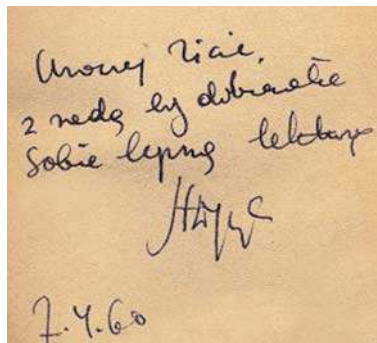 Uroczej Zicie,
z radą by dobierała
sobie lepszą lekturę
7.4.60